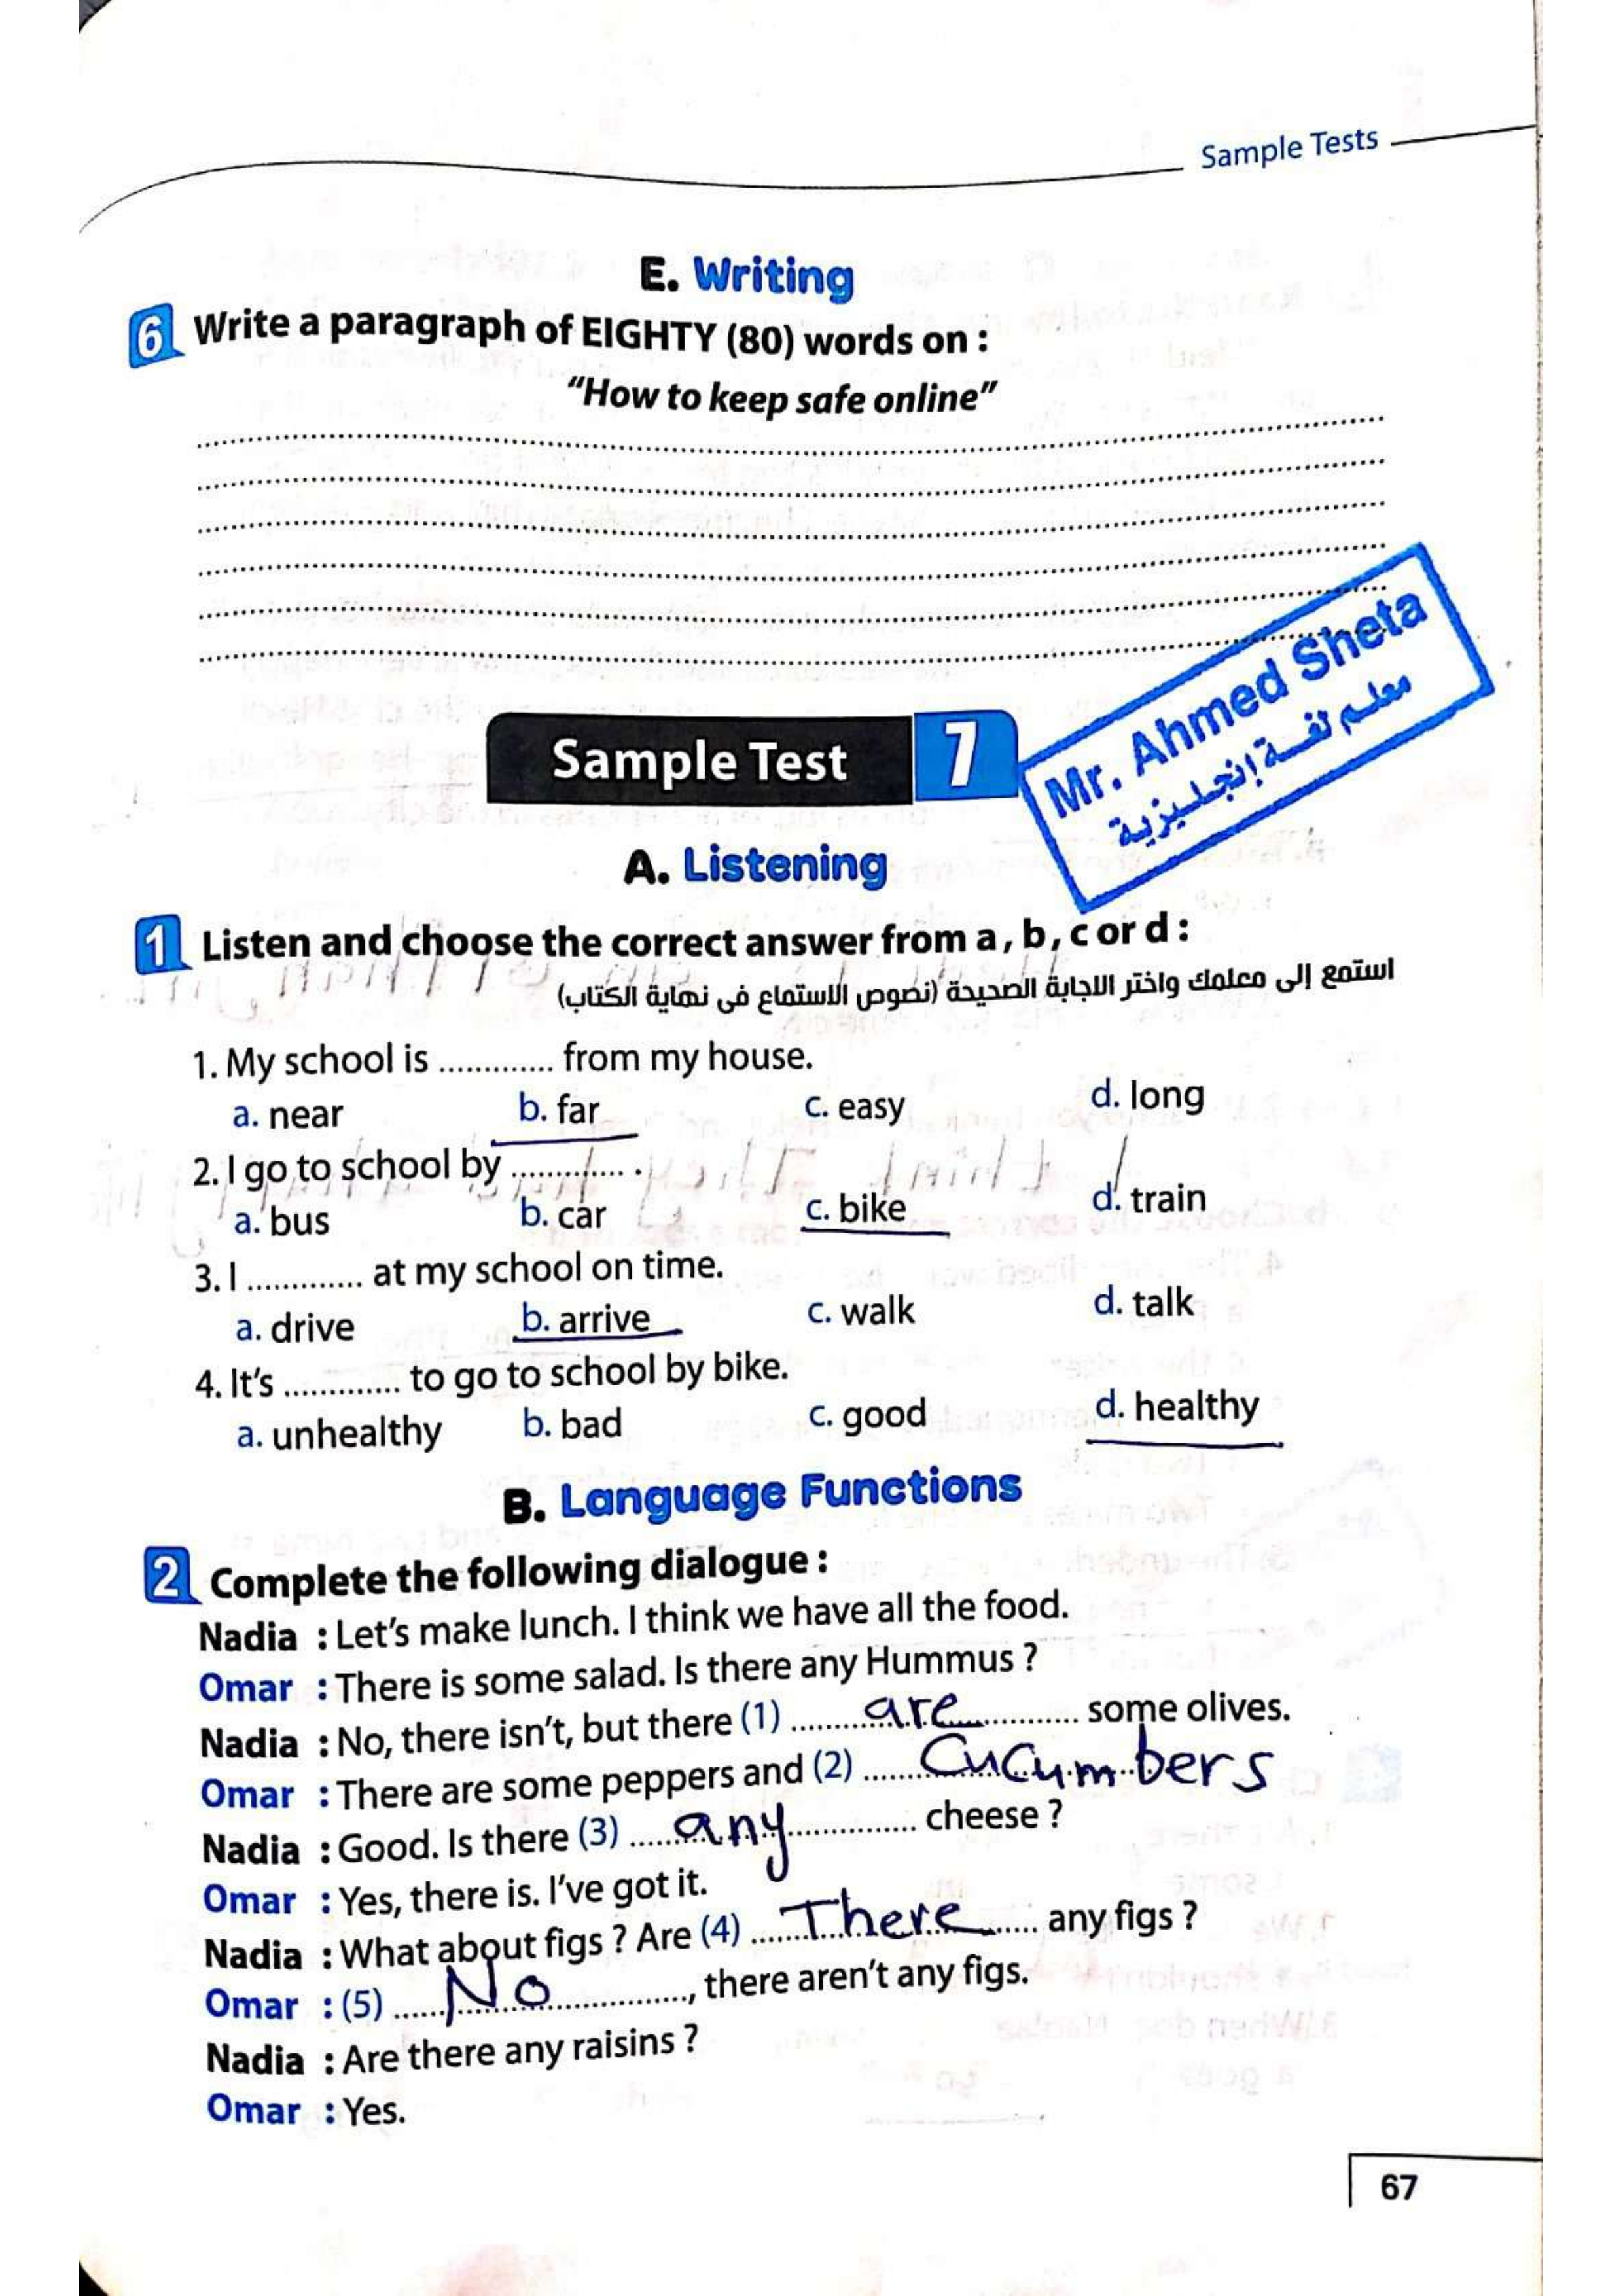 Sample Tests
E. Writing
6 Write a paragraph of EIGHTY (80) words on :
"How to keep safe online"
Sample Test 7
Mr. Ahmed Sheta
معلم لغة إنجليزية
A. Listening
1 Listen and choose the correct answer from a, b, c or d :
استمع إلى معلمك واختر الاجابة الصحيحة (نصوص الاستماع فى نهاية الكتاب)
1. My school is ............. from my house.
a. near b. far c. easy d. long
2. I go to school by ............. .
a. bus b. car c. bike d. train
3. I ............. at my school on time.
a. drive b. arrive c. walk d. talk
4. It's ............. to go to school by bike.
a. unhealthy b. bad c. good d. healthy
B. Language Functions
2 Complete the following dialogue :
Nadia : Let's make lunch. I think we have all the food.
Omar : There is some salad. Is there any Hummus ?
Nadia : No, there isn't, but there (1) ..... are ..... some olives.
Omar : There are some peppers and (2) ..... Cucumbers
Nadia : Good. Is there (3) ..... any ..... cheese ?
Omar : Yes, there is. I've got it.
Nadia : What about figs ? Are (4) ..... There ..... any figs ?
Omar : (5) ..... No ....., there aren't any figs.
Nadia : Are there any raisins ?
Omar : Yes.
67